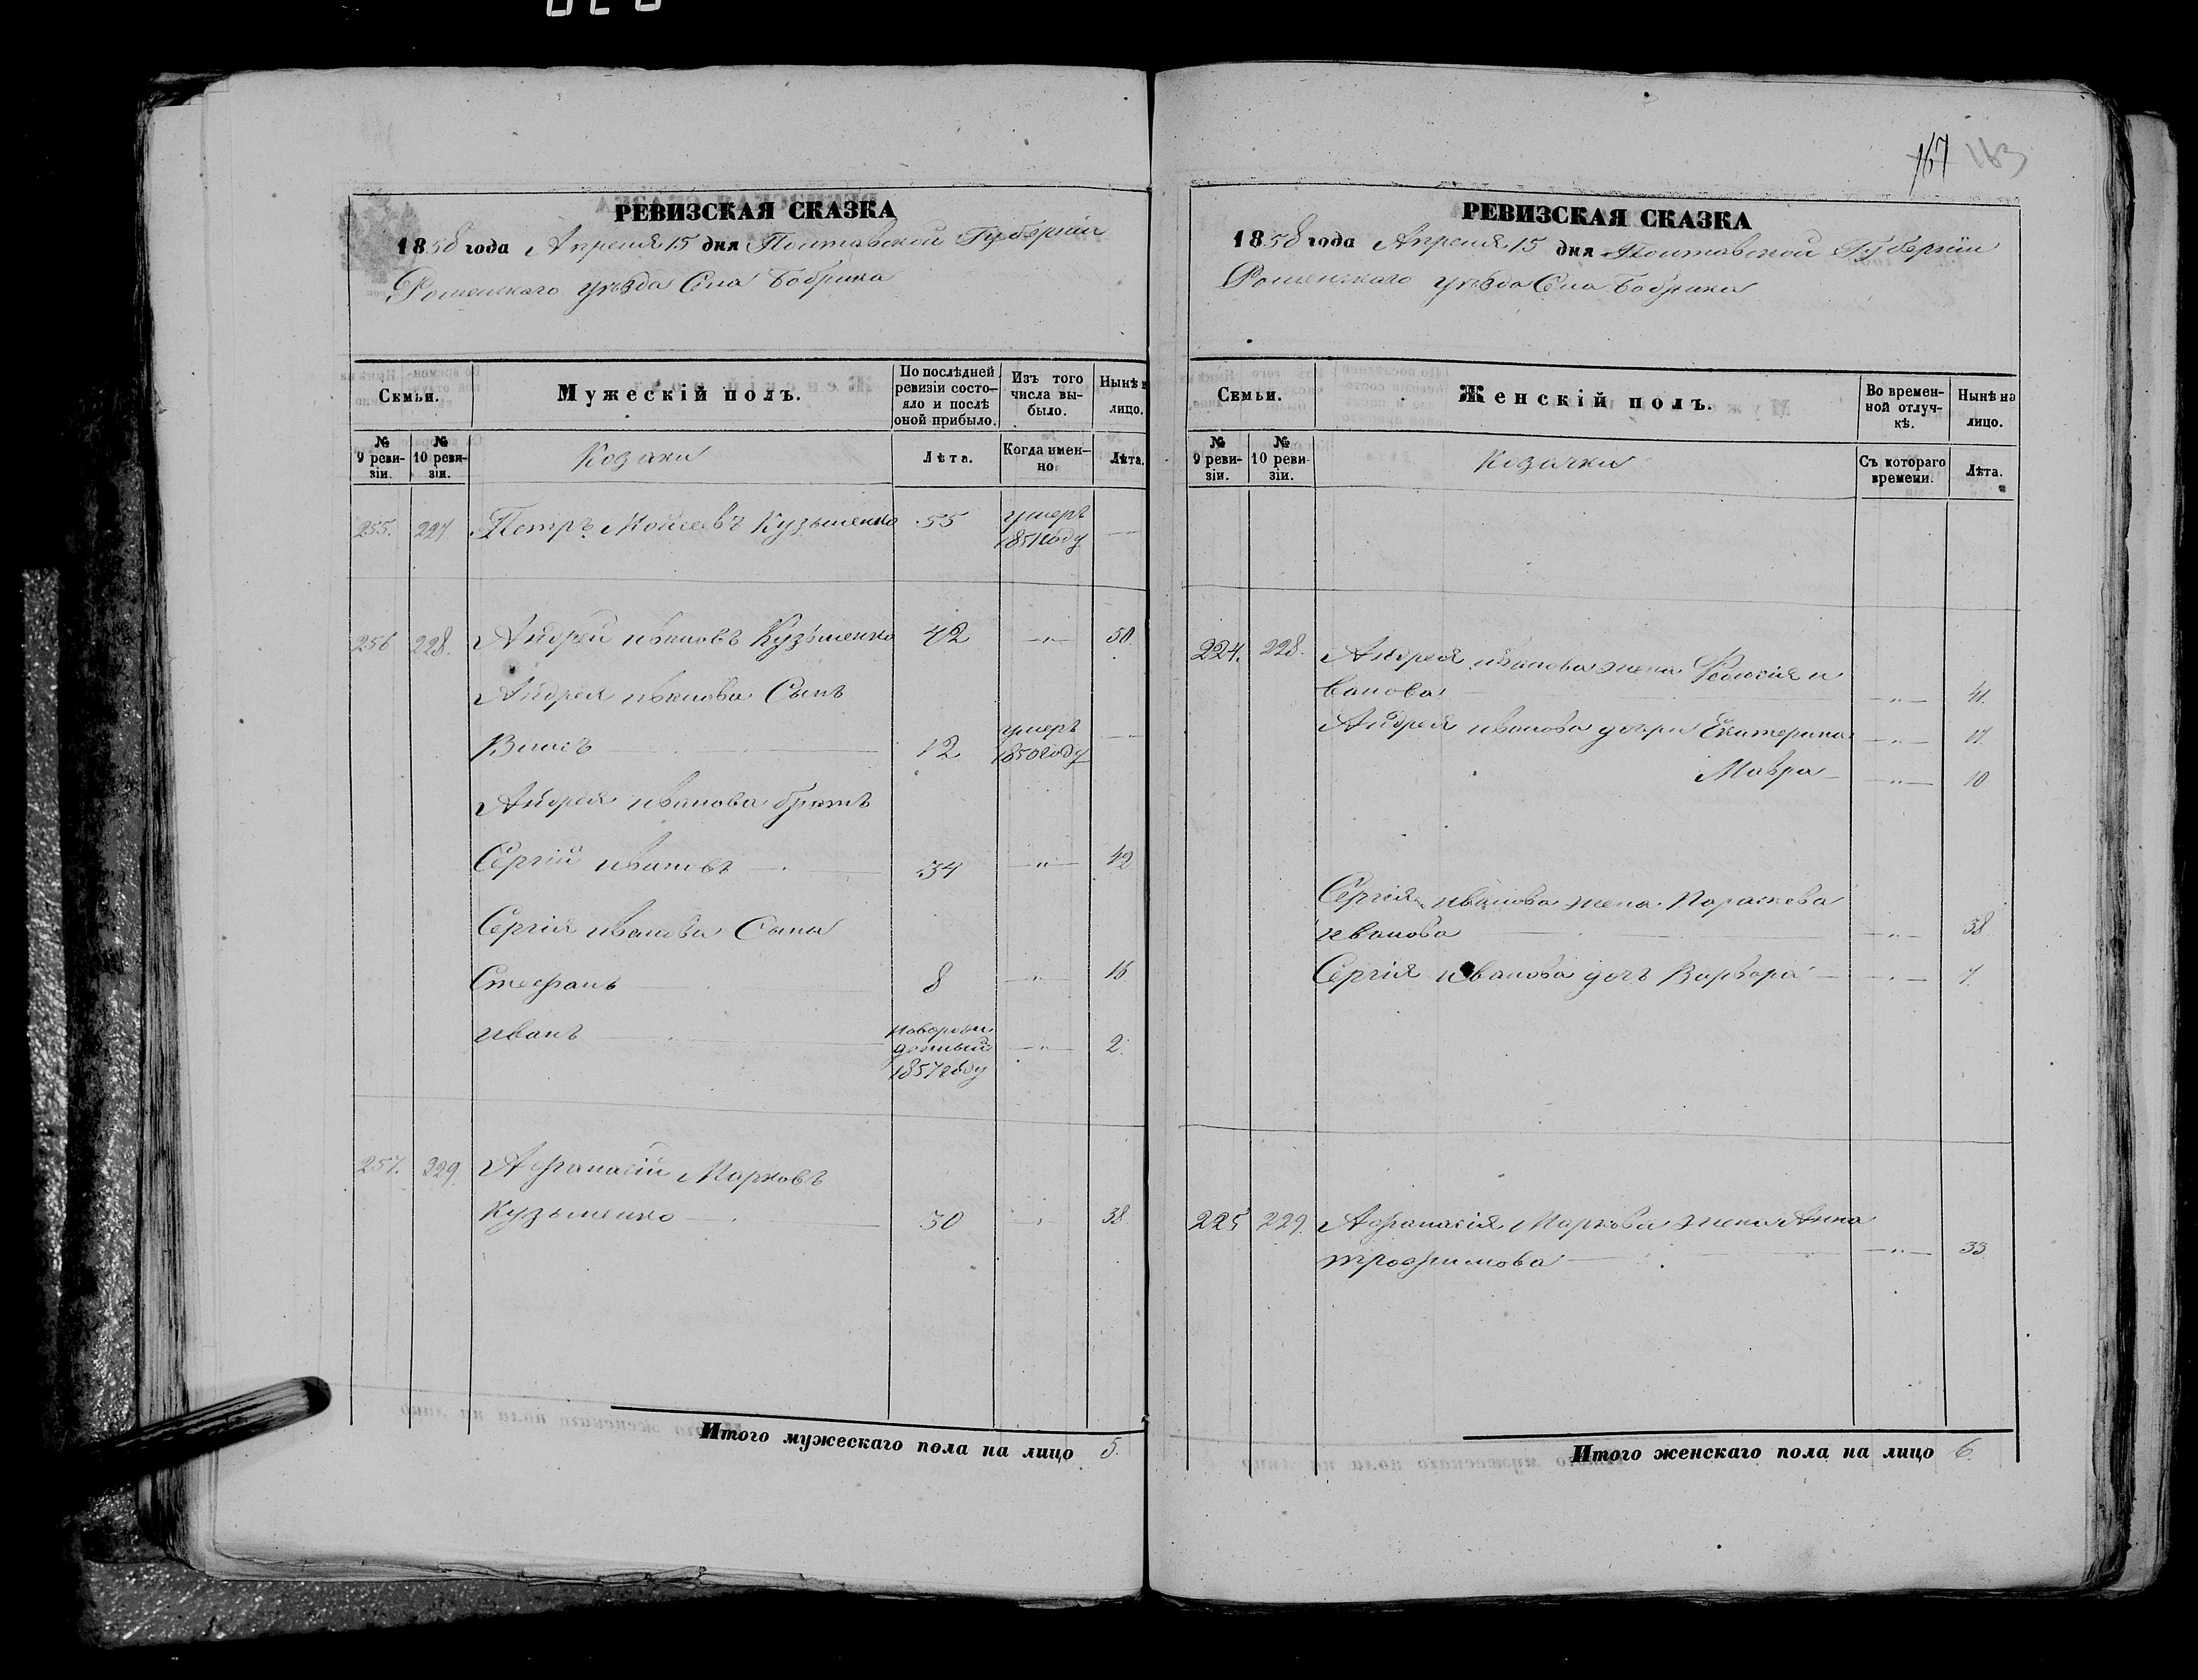 167 163
РЕВИЗСКАЯ СКАЗКА
1858 года Апреля 15 дня Полтавской Губернии
Роменскаго уѣзда Села Бобрика
Семьи.
Мужескій полъ.
По послѣдней ревизіи состояло и послѣ оной прибыло.
Изъ того числа выбыло.
Нынѣ н лицо.
№ 9 ревизіи.
№ 10 ревизіи.
Козаки
Лѣта.
Когда именно.
Лѣта.
255. 227. Петръ Моисеевъ Кузьменко 55 умеръ 1851 году —
256 228. Андрей ивановъ Кузьменко 42 —"— 50
Андрея иванова Сынъ
Власъ 12 умеръ 1850 году —
Андрея иванова братъ
Сергій ивановъ 34 —"— 42
Сергія иванова Сына
Стефанъ 8 —"— 16
иванъ новорожденный 1857 году —"— 2.
257. 229. Афанасій Марковъ
Кузьменко 30 —"— 38
Итого мужескаго пола на лицо 5.
РЕВИЗСКАЯ СКАЗКА
1858 года Апреля 15 дня Полтавской Губернии
Роменскаго уѣзда Села Бобрика
Семьи.
Женскій полъ.
Во временной отлучкѣ.
Нынѣ на лицо.
№ 9 ревизіи.
№ 10 ревизіи.
Козачки
Съ котораго времени.
Лѣта.
224. 228. Андрея иванова жена Феодосия и
ванова —"— 41.
Андрея иванова дочери Екатерина —"— 17.
Мавра —"— 10
Сергія иванова жена Параскева
иванова —"— 38
Сергія иванова дочь Варвара —"— 7.
225 229. Афанасія Маркова жена Анна
трофимова —"— 33
Итого женскаго пола на лицо 6.